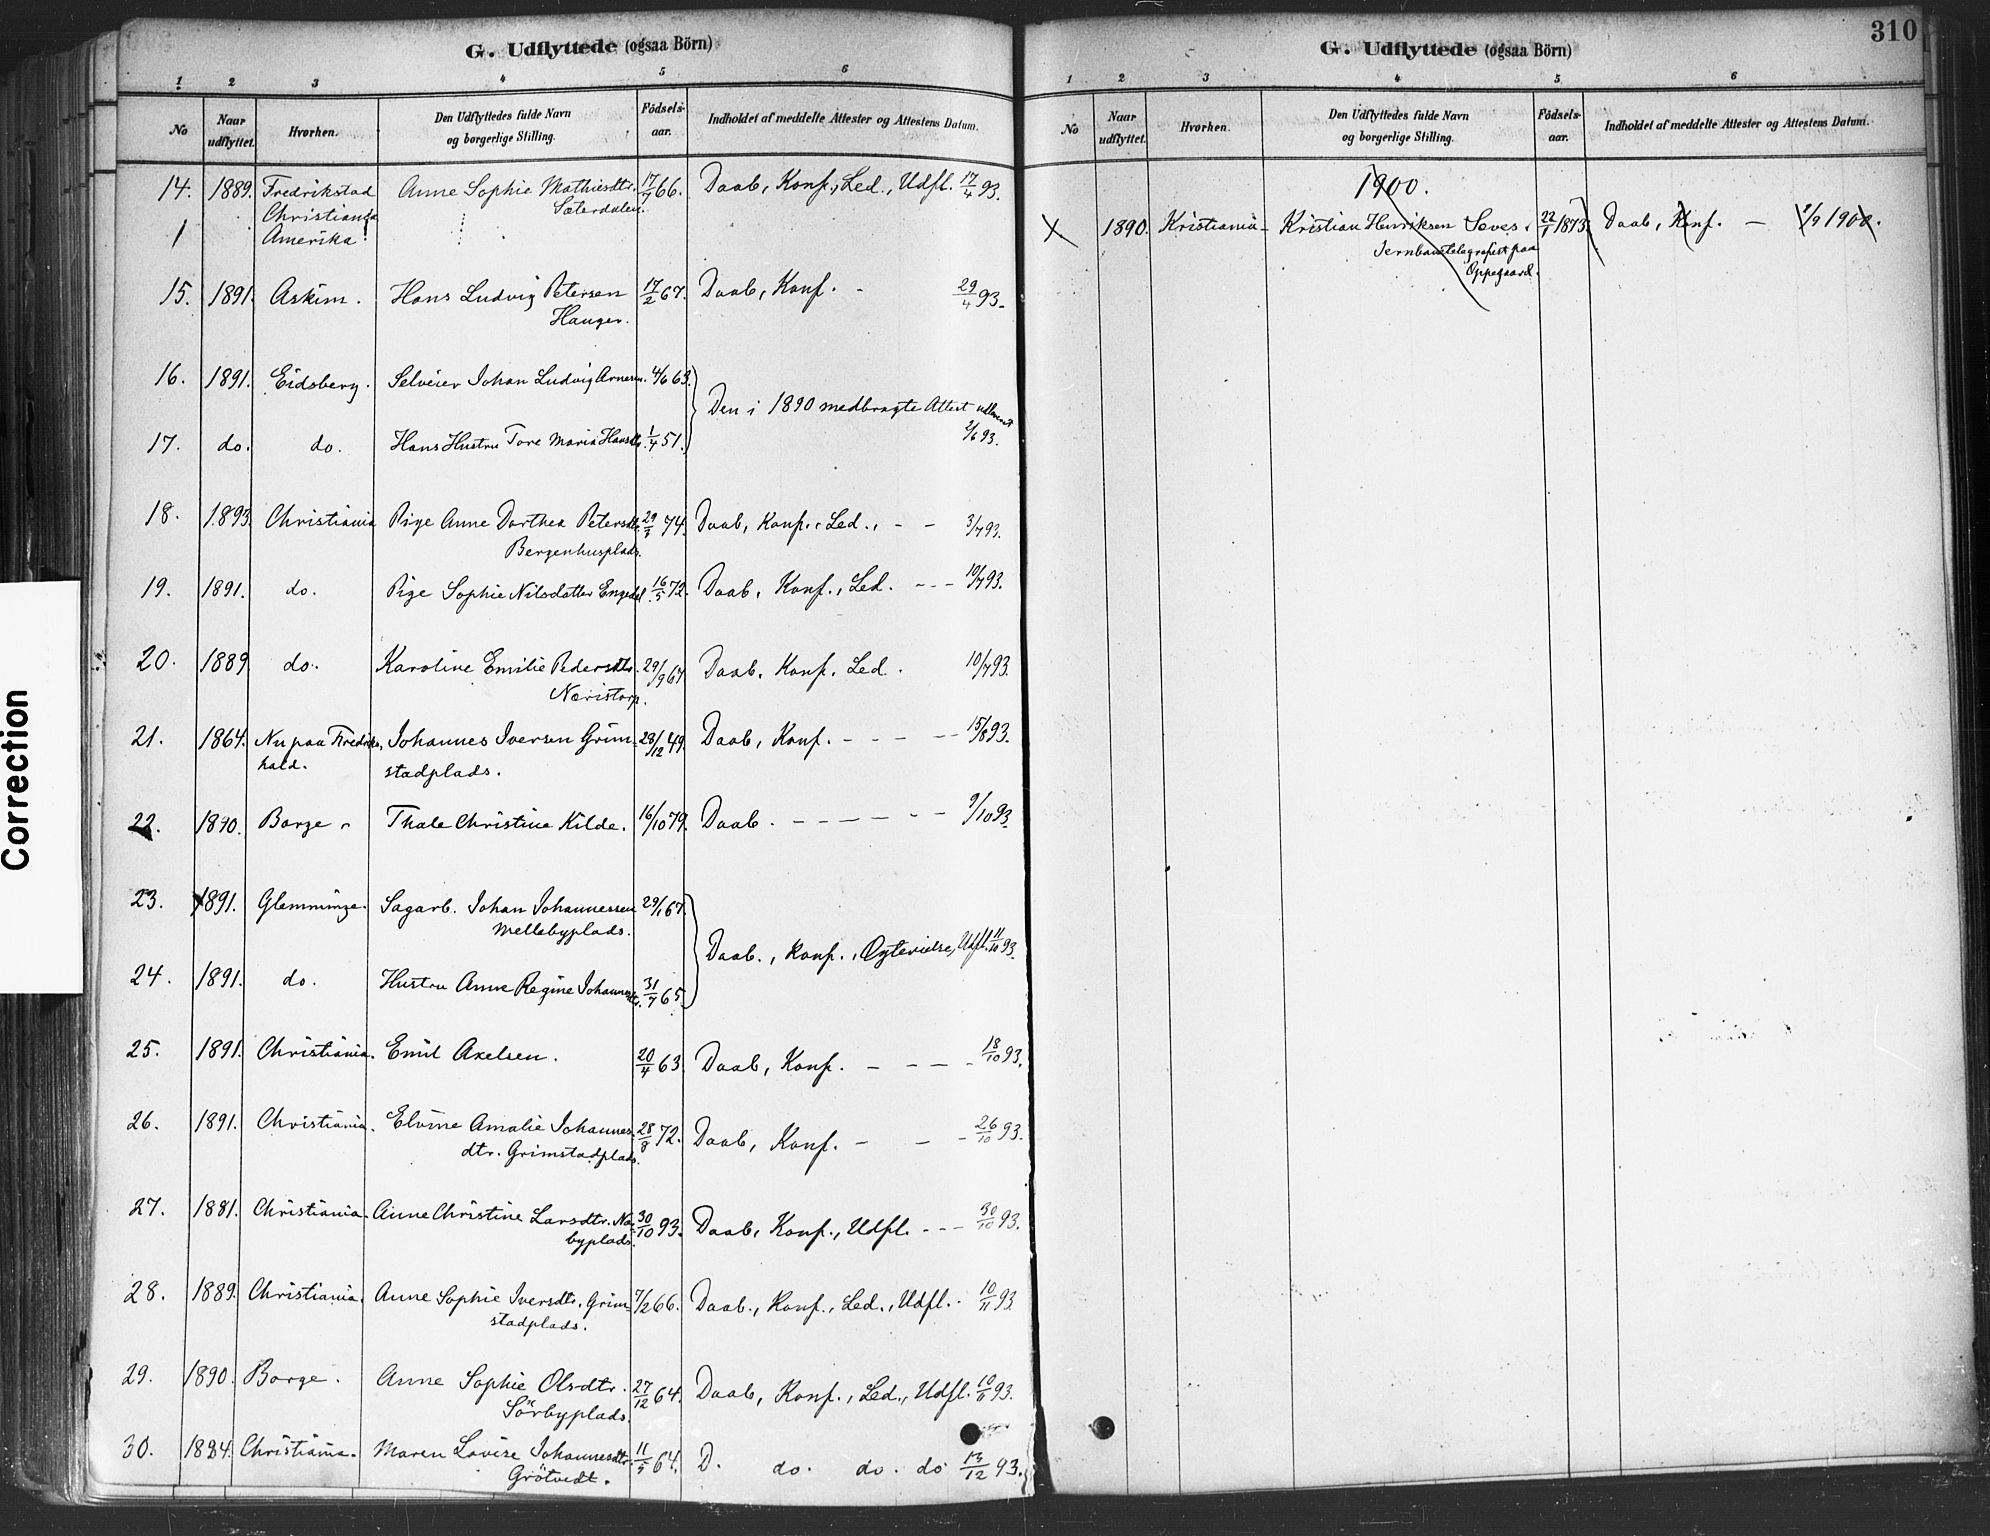 G. Udflyttede (ogsaa Börn)
1 2 3 4 5 6
No Naar udflyttet. Hvorhen. Den Udflyttedes fulde Navn og borgerlige Stilling. Födselsaar. Indholdet af meddelte Attester og Attestens Datum.
14. 1889. Fredrikstad Anne Sophie Mathiesdtr. 17/7 66. Daab, Konf., Led., Udfl. 17/4 93.
Christiania Sæterdalen.
Amerika!
15. 1891. Askim. Hans Ludvig Petersen 17/2 67. Daab, Konf. - 29/4 93.
Hauger.
16. 1891. Eidsberg. Selveier Johan Ludvig Arnesen. 4/6 63.
Den i 1890 medbragte Attest udleveret 2/6 93.
17. do. do. Hans Hustru Tore Maria Hansdtr. 1/4 51.
18. 1893. Christiania Pige Anne Dorthea Petersdtr. 29/3 74. Daab, Konf., Led., - - 3/7 93.
Bergenhusplads.
19. 1891. do. Pige Sophie Nilsdatter Engedal 16/5 72. Daab, Konf., Led. - - - 10/7 93.
20. 1889 do. Karoline Emilie Pedersdtr. 29/9 67 Daab, Konf. Led. 10/7 93.
Næristorp.
21. 1864. Nu paa Fredriks- Johannes Iversen Grim- 28/12 49. Daab, Konf. - - - - - 15/8 93.
hald. stadplads.
22. 1890. Borge Thale Christine Kilde. 16/10 79. Daab. - - - - - - - 9/10 93.
23. 1891. Glemminge. Sagarb. Johan Johannessen 29/1 67.
Mellebyplads.
Daab., Konf., Ægtevielse, Udfl. 11/10 93.
24. 1891. do. Hustru Anne Regine Johannesdtr. 31/7 65.
25. 1891. Christiania. Emil Axelsen. 20/4 63. Daab, Konf. - - - - 18/10 93.
26. 1891. Christiania. Elvine Amalie Johannes- 28/8 72. Daab, Konf. - - - 26/10 93.
dtr. Grimstadplads.
27. 1881. Christiania. Anne Christine Larsdtr. Næ- 30/10 93. Daab, Konf., Udfl. - - - 30/10 93.
byplads.
28. 1889. Christiania. Anne Sophie Iversdtr. Grim- 7/2 66. Daab., Konf., Led., Udfl. - 10/11 93
stadplads.
29. 1890. Borge. Anne Sophie Olsdtr. 27/12 64. Daab, Konf., Led., Udfl. 10/11 93.
Sörbyplads.
30. 1884. Christiania. Maren Lovise Johannesdtr. 11/5 64. D. do. do. do 13/12 93.
Grötvedt.
310
G. Udflyttede (ogsaa Börn)
1 2 3 4 5 6
No Naar udflyttet. Hvorhen. Den Udflyttedes fulde Navn og borgerlige Stilling. Födselsaar. Indholdet af meddelte Attester og Attestens Datum.
1900.
1890. Kristiania - Kristian Henriksen 22/1 1873. Daab, Konf. - 1/9 1900.
Jernbanetelegrafist paa
Oppegaard.
Correction